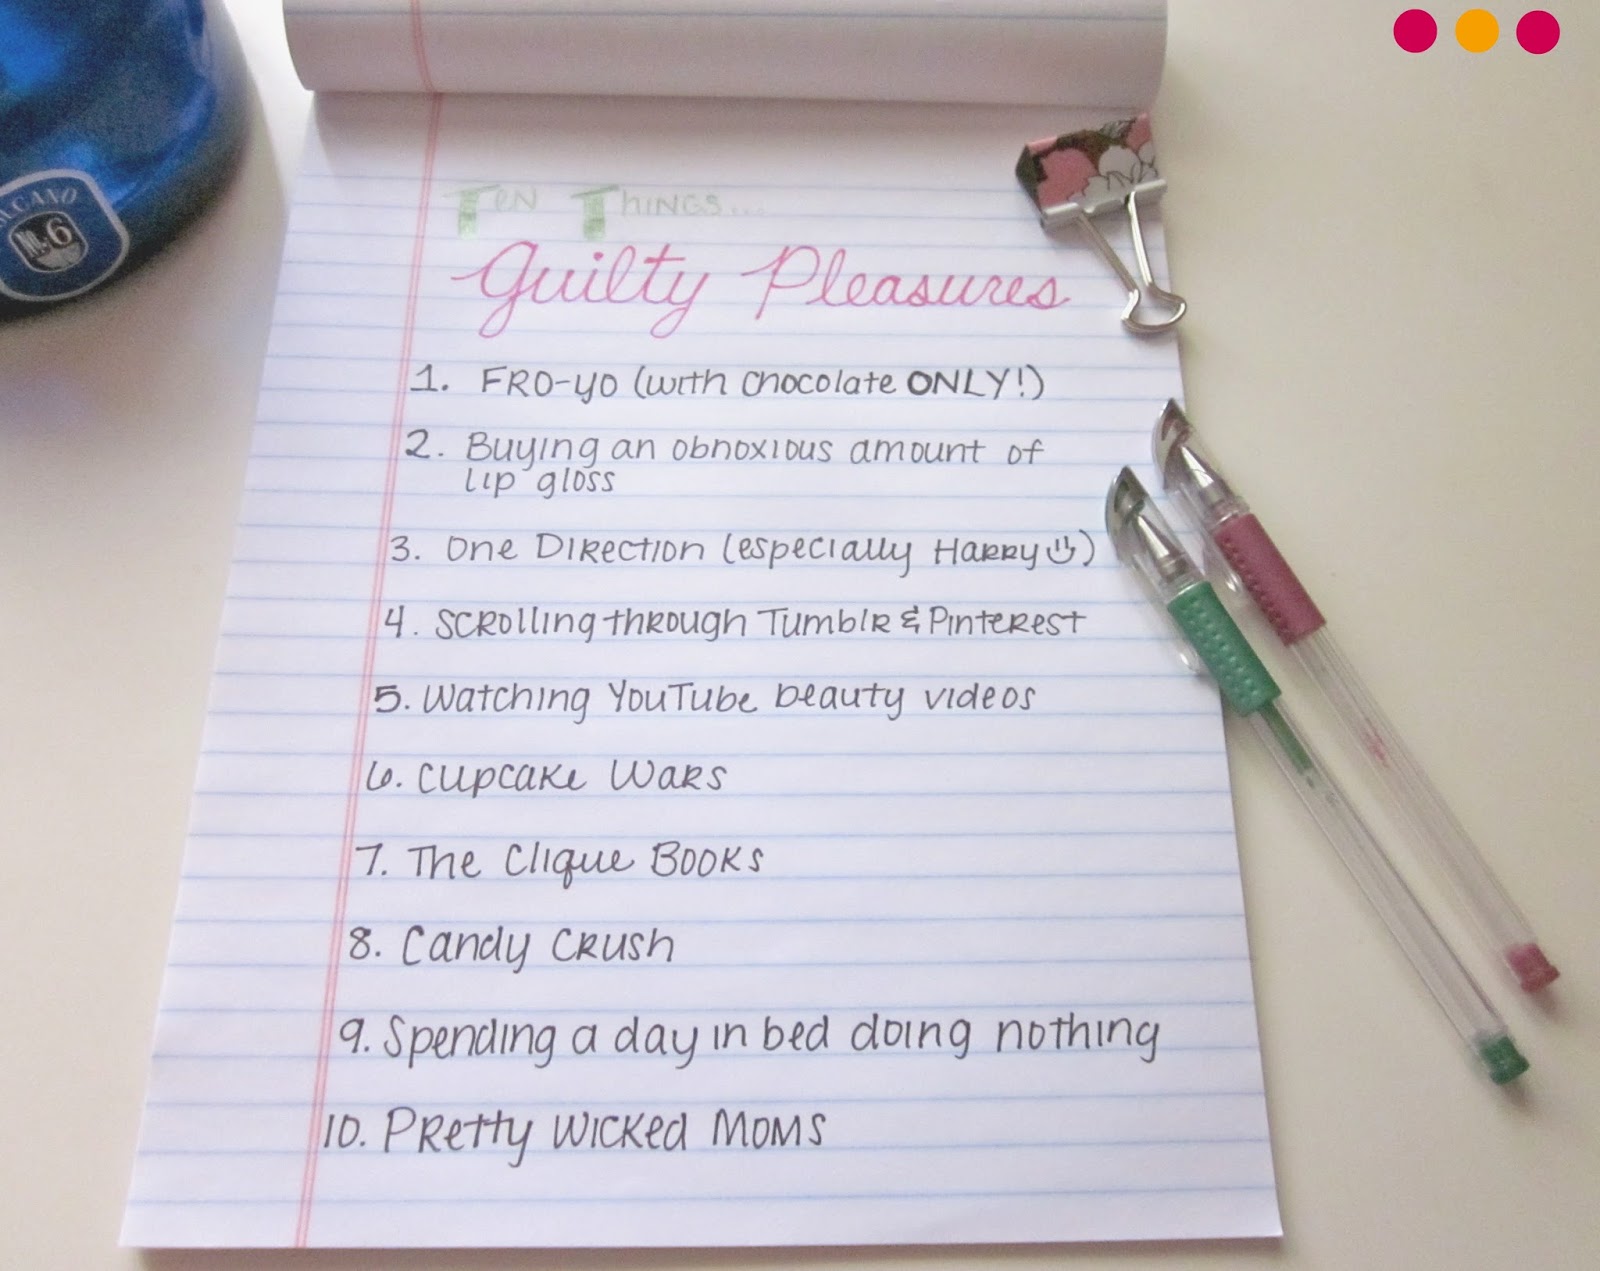 Ten Things...
Guilty Pleasures
1. FRO-YO (with chocolate ONLY!)
2. Buying an obnoxious amount of
lip gloss
3. One Direction (especially Harry☺)
4. Scrolling through Tumblr & Pinterest
5. Watching YouTube beauty videos
6. Cupcake Wars
7. The Clique Books
8. Candy Crush
9. Spending a day in bed doing nothing
10. Pretty Wicked Moms
No. 6